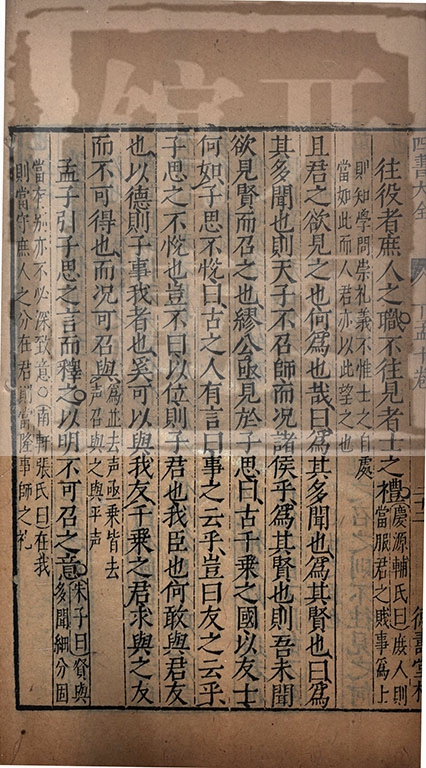 四書大全 下孟十卷 二十二
往役者庶人之職不往見者士之禮慶源輔氏曰庶人則當服君之賤事為上
則知學問崇礼義不惟士之自處當如此而人君亦以此望之也
且君之欲見之也何為也哉曰為其多聞也為其賢也曰為
其多聞也則天子不召師而况諸侯乎為其賢也則吾未聞
欲見賢而召之也繆公亟見於子思曰古千乘之國以友士
何如子思不悅曰古之人有言曰事之云乎豈曰友之云乎
子思之不悅也豈不曰以位則子君也我臣也何敢與君友
也以德則子事我者也奚可以與我友千乘之君求與之友
而不可得也而况可召與為並去声亟乘皆去声召與之與平声
孟子引子思之言而釋之以明不可召之意朱子曰賢與多聞細分固
當有别亦不必深致意○南軒張氏曰在我則當守庶人之分在君則當隆事師之礼